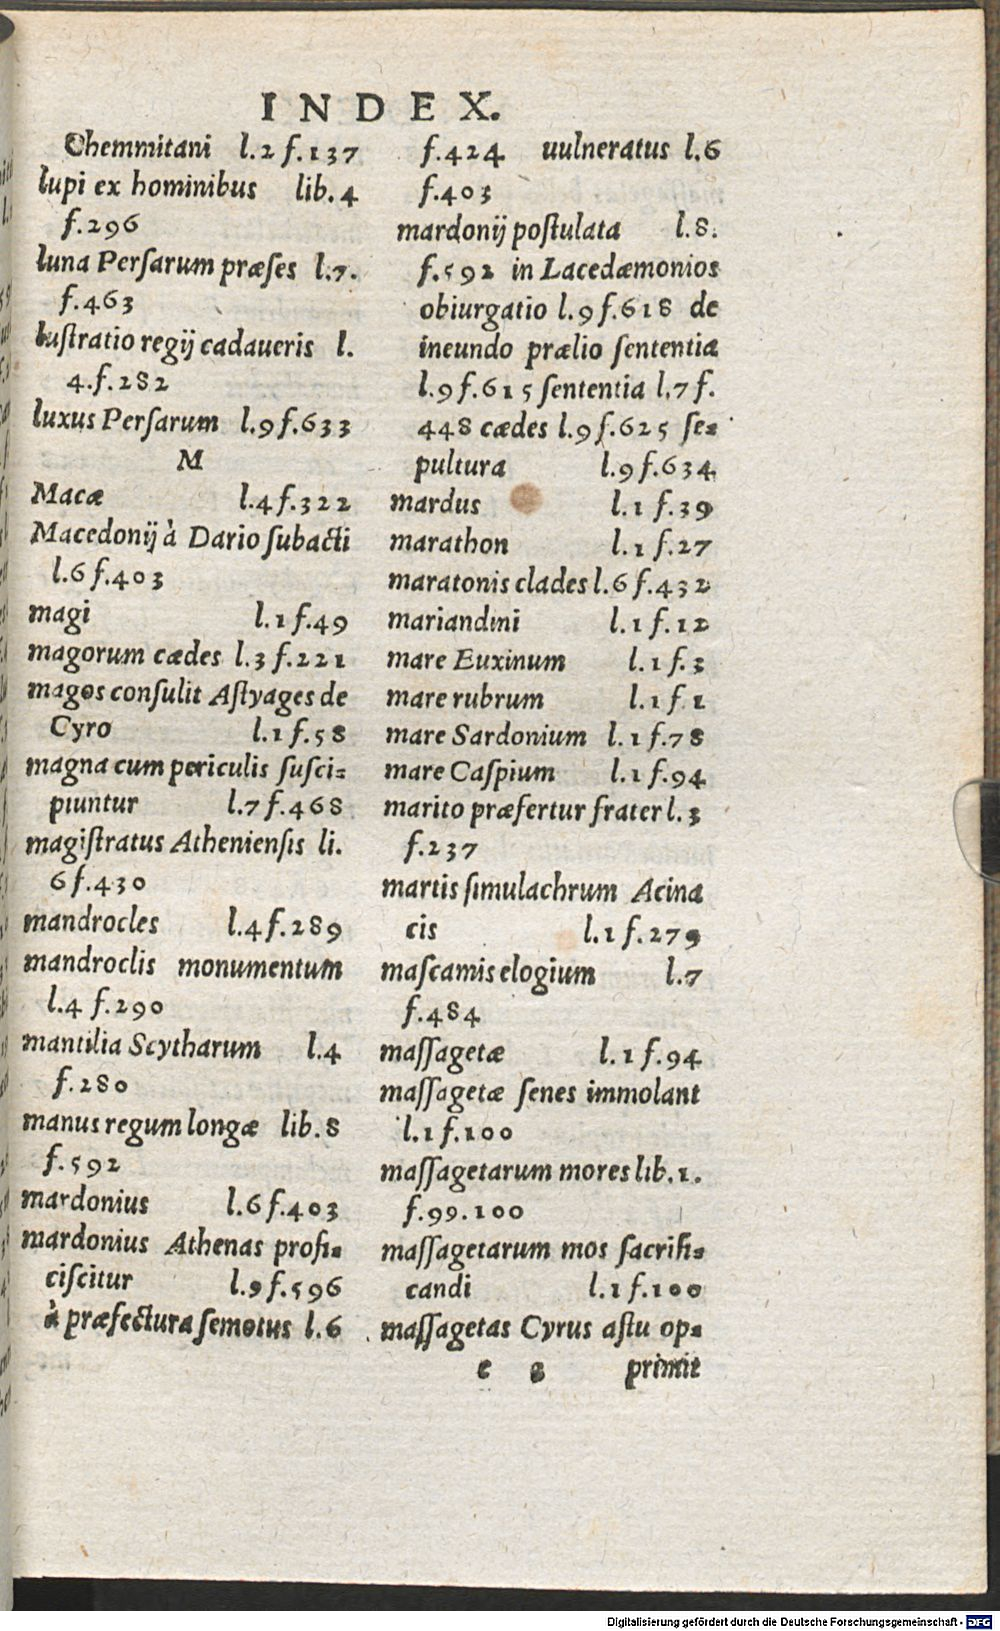 INDEX.
Chemmitani l.2 f.137
lupi ex hominibus lib.4
f.296
luna Perſarum præſes l.7.
f.463
luſtratio regij cadaueris l.
4.f.282
luxus Perſarum l.9 f.633
M
Macæ l.4 f.322
Macedonij à Dario ſubacti
l.6 f.403
magi l.1 f.49
magorum cædes l.3 f.221
magos conſulit Aſtyages de
Cyro l.1 f.58
magna cum periculis ſuſci=
piuntur l.7 f.468
magiſtratus Athenienſis li.
6 f.430
mandrocles l.4 f.289
mandroclis monumentum
l.4 f.290
mantilia Scytharum l.4
f.280
manus regum longæ lib.8
f.592
mardonius l.6 f.403
mardonius Athenas profi=
ciſcitur l.9 f.596
à præfectura ſemotus l.6
f.424 uulneratus l.6
f.403
mardonij poſtulata l.8.
f.592 in Lacedæmonios
obiurgatio l.9 f.618 de
ineundo prælio ſententia
l.9 f.615 ſententia l.7 f.
448 cædes l.9 f.625 ſe=
pultura l.9 f.634
mardus l.1 f.39
marathon l.1 f.27
maratonis clades l.6 f.432
mariandini l.1 f.12
mare Euxinum l.1 f.3
mare rubrum l.1 f.1
mare Sardonium l.1 f.78
mare Caſpium l.1 f.94
marito præfertur frater l.3
f.237
martis ſimulachrum Acina
cis l.1 f.279
maſcamis elogium l.7
f.484
maſſagetæ l.1 f.94
maſſagetæ ſenes immolant
l.1 f.100
maſſagetarum mores lib.1.
f.99.100
maſſagetarum mos ſacrifi=
candi l.1 f.100
maſſagetas Cyrus aſtu op=
primit
Digitalisierung gefördert durch die Deutsche Forschungsgemeinschaft - DFG